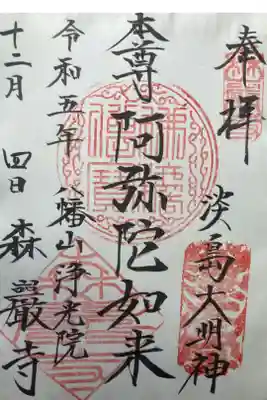 奉拝
淡島大明神
本尊阿弥陀如来
令和五年 八幡山浄光院
十二月 四日 森巖寺